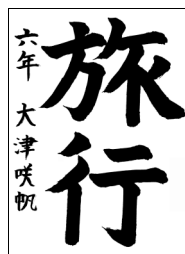 旅行
六年 大津咲帆